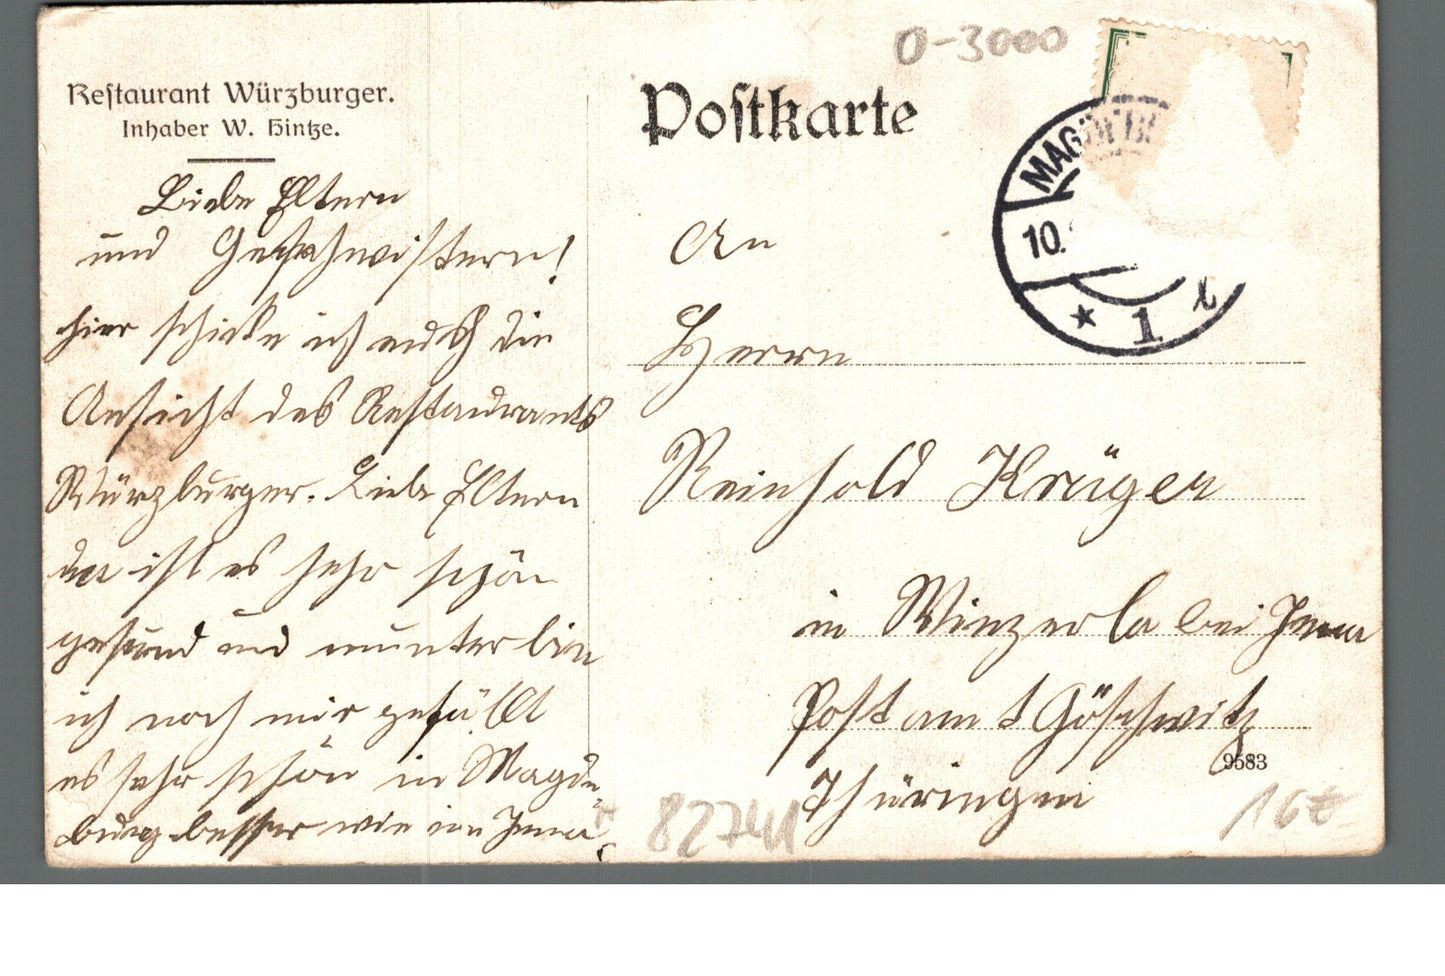 Restaurant Würzburger.
Inhaber W. Hintze.
Liebe Eltern
und Geschwistern!
hier schicke ich euch die
Ansicht des Restaurants
Würzburger. Liebe Eltern
da ist es sehr schön
gesund und munter bin
ich noch mir gefällt
es sehr schön in Magde-
burg besser wie in Jena.
O-3000
Postkarte
MAGDEB
10.
* 1 t
An
Herrn
Reinhold Krüger
in Winzerla bei Jena
Postamt Göschwitz
9583
Thüringen
82741
16